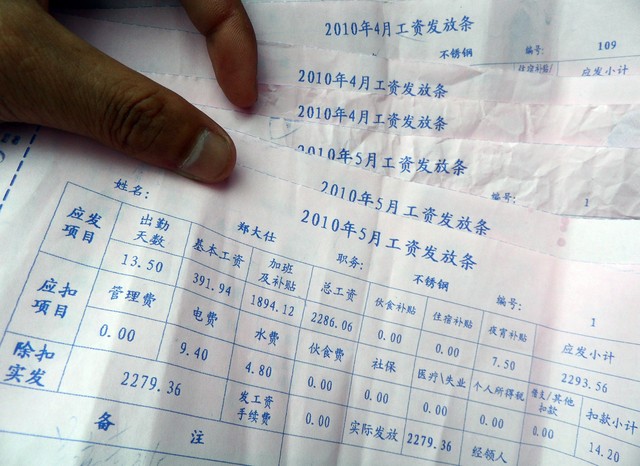 2010年4月工资发放条
不锈钢 编号: 109
住宿补贴 应发小计
2010年4月工资发放条
2010年4月工资发放条
2010年5月工资发放条
编号: 1
2010年5月工资发放条
2010年5月工资发放条
姓名: 郑大仕 职务: 不锈钢 编号: 1
应发项目 出勤天数 基本工资 加班及补贴 总工资 伙食补贴 住宿补贴 夜宵补贴 应发小计
13.50 391.94 1894.12 2286.06 0.00 0.00 7.50 2293.56
应扣项目 管理费 电费 水费 伙食费 社保 医疗\失业 个人所得税 借支/其他扣款 扣款小计
0.00 9.40 4.80 0.00 0.00 0.00 0.00 0.00 14.20
除扣实发 2279.36 发工资手续费 0.00 实际发放 2279.36 经领人
备 注